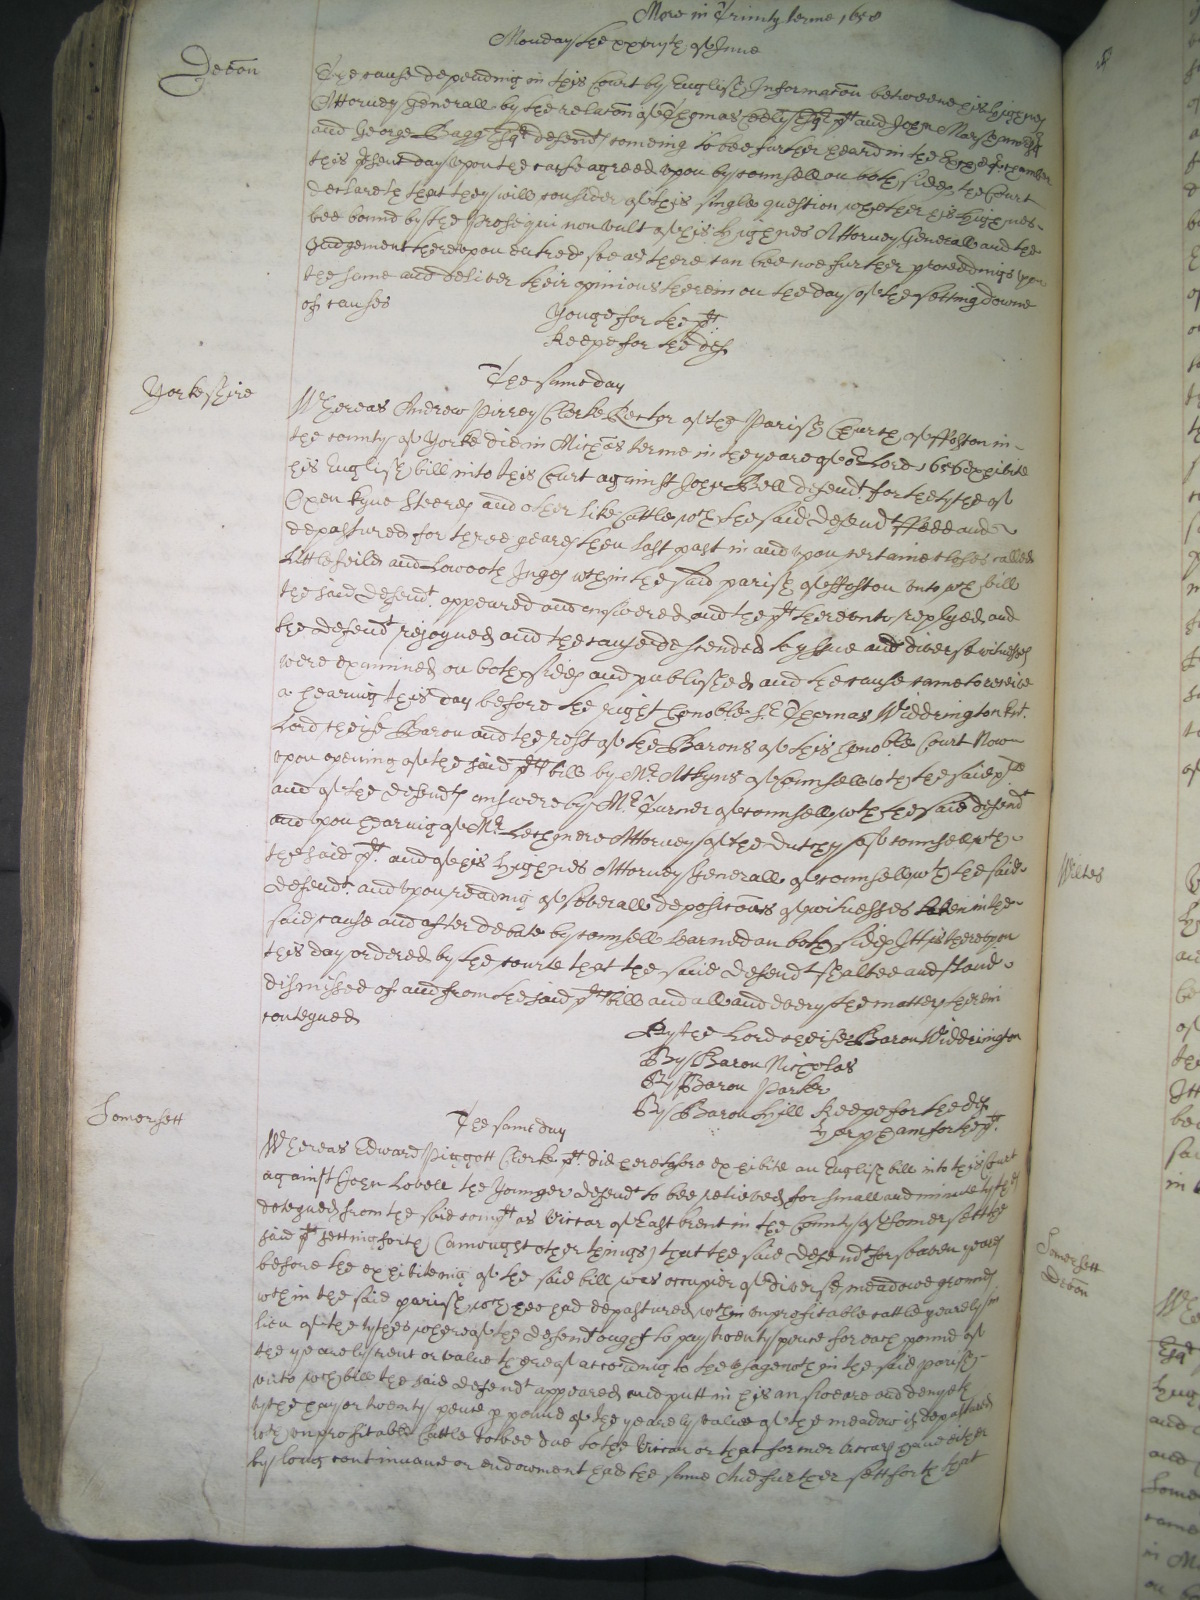 More in Trinity terme 1658
Monday the xxviijth of June
Devon
The cause depending in this Court by English Informacon betweene his Highnes
Attorney Generall by the relacon of Thomas Esqr plt and John
and George Bagg Esqr defendts comeing to bee further heard in the Excheqr chamber
this present day upon the cause agreed upon by counsell on both sides the Court
declareth that they will consider of this single question whether his Highnes
bee bound by the Prosequi non vult of his Highnes Attorney Generall and the
Judgement thereupon entred soe as there can bee noe further proceedings upon
the same and deliver their opinions therein on the day of the setting downe
of causes
Yonge for the plt
Keepe for the def
The same day
Yorkeshire
Whereas Andrew Pirrey Clerke Rector of the Parish Church of ffoston in
the county of Yorke did in Michas terme in the yeare of or Lord 1656 exhibite
his English bill into this Court against John Bell defendt for the tythe of
Oxen Kyne Steeres and other like Cattle wch the said defendt ffedd and
depastured for three yeares then last past in and upon certaine closes called
Littlefeild and Ings wthin the said parish of ffoston unto wch bill
the said defendt appeared and answered and the plt thereunto replyed and
the defendt rejoyned and the cause descended to yssue and diverse witnesses
were examined on both sides and published and the cause came to receive
a hearing this day before the right honoble Sr Thomas Widdrington knt
Lord cheife Baron and the rest of the Barons of this honoble Court Now
upon opening of the said plts bill by Mr Atkyns of counsell wth the said plt
and of the defendts answere by Mr Turner of counsell wth the said defendt
and upon hearing of Mr Lechmere Attorney of the Dutchy of counsell wth
the said plt and of his Highnes Attorney Generall of counsell wth the said
defendt and upon reading of severall deposicons of witnesses taken in the
said cause and after debate by counsell learned on both sides It is thereupon
this day ordered by the courte that the said defendt shalbee and stand
dismissed of and from the said plts bill and all and every the matters therein
conteyned
By the Lord cheife Baron Widdrington
By Baron Nicholas
By Baron Parker
By Baron Hill Keepe for the def
Harpham for the plt
The same day
Somersett
Whereas Edward Piggott Clerke plt did heretofore exhibite an English bill into this Court
against John Lovell the Younger defendt to bee relieved for small and minute tythes
deteyned from the said complt as Viccar of East brent in the County of Somersett the
said plt setting forth (amongst other things) that the said defendt for seaven yeares
before the exhibiteing of the said bill was occupier of diverse meadowe grounds
wthin the said parish wch hee had depastured wth unprofitable cattle yearely in
lieu of the tythes whereof the defendt ought to pay twenty pence for each pound of
the yearely rent or value thereof according to the usage wthin the said parish
unto wch bill the said defendt appeared and putt in his answeare and denyeth
tythe hay or twenty pence p pound of the yearely value of the meadow if depastured
wth unprofitable Cattle to bee due to the Viccar or that former viccars have either
by long continuance or endowment had the same And further setteth forth that
Wiltes
Somersett
Devon